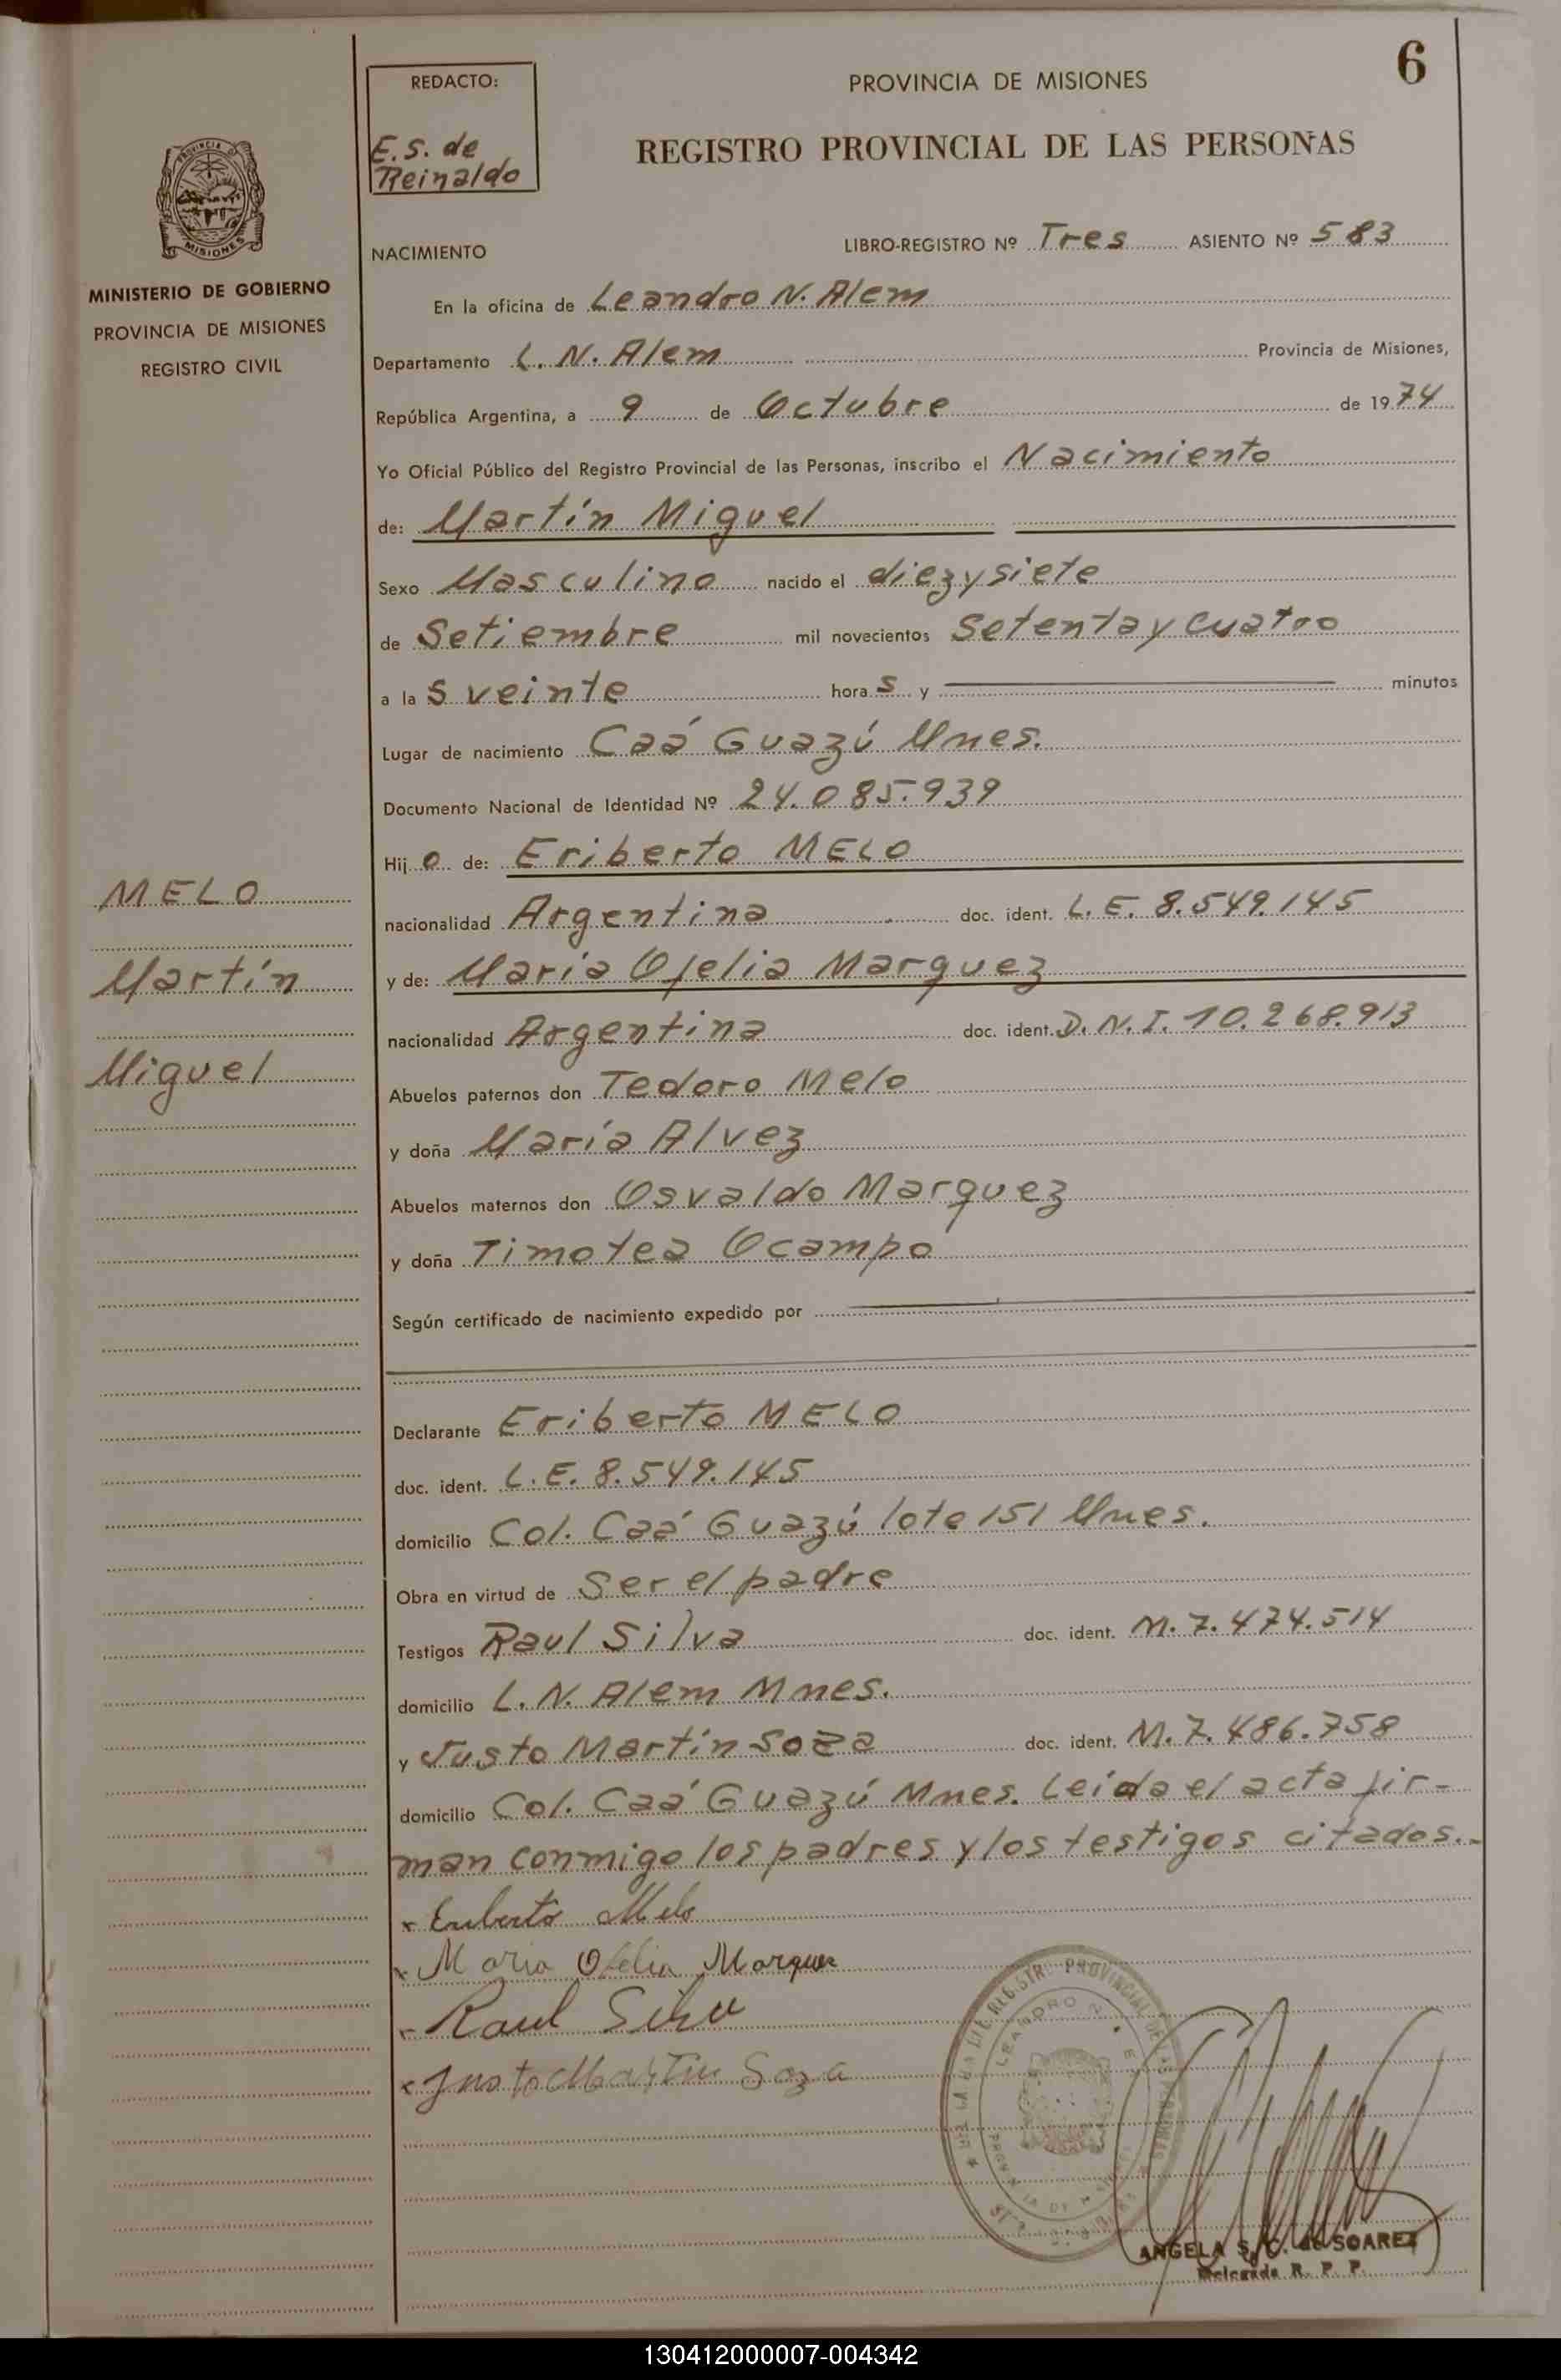 6
REDACTO:
E.S. de
Reinaldo
PROVINCIA DE MISIONES
REGISTRO PROVINCIAL DE LAS PERSONAS
PROVINCIA D
MISIONES
MINISTERIO DE GOBIERNO
PROVINCIA DE MISIONES
REGISTRO CIVIL
NACIMIENTO LIBRO-REGISTRO Nº Tres ASIENTO Nº 583
En la oficina de Leandro N. Alem
Departamento L. N. Alem Provincia de Misiones,
República Argentina, a 9 de Octubre de 1974
Yo Oficial Público del Registro Provincial de las Personas, inscribo el Nacimiento
de: Martín Miguel
Sexo Masculino nacido el diezysiete
de Setiembre mil novecientos Setentaycuatro
a las veinte horas y minutos
Lugar de nacimiento Caá Guazú Mnes.
Documento Nacional de Identidad Nº 24.085.939
Hijo de: Eriberto MELO
nacionalidad Argentina doc. ident. L.E. 8.549.145
y de: María Ofelia Marquez
nacionalidad Argentina doc. ident. D.N.I. 10.268.913
Abuelos paternos don Tedoro Melo
y doña María Alvez
Abuelos maternos don Osvaldo Marquez
y doña Timotea Ocampo
Según certificado de nacimiento expedido por
MELO
Martín
Miguel
Declarante Eriberto MELO
doc. ident. L.E. 8.549.145
domicilio Col. Caá Guazú lote 151 Mnes.
Obra en virtud de Ser el padre
Testigos Raul Silva doc. ident. M. 7.474.514
domicilio L. N. Alem Mnes.
y Justo Martín Soza doc. ident. M. 7.486.758
domicilio Col. Caá Guazú Mnes. Leida el acta fir-
man conmigo los padres y los testigos citados.-
x Eriberto Melo
x Maria Ofelia Marquez
- Raul Silva
x Justo Martin Soza
ANGELA S. C. de SOAREZ
Delegada R. P. P.
130412000007-004342